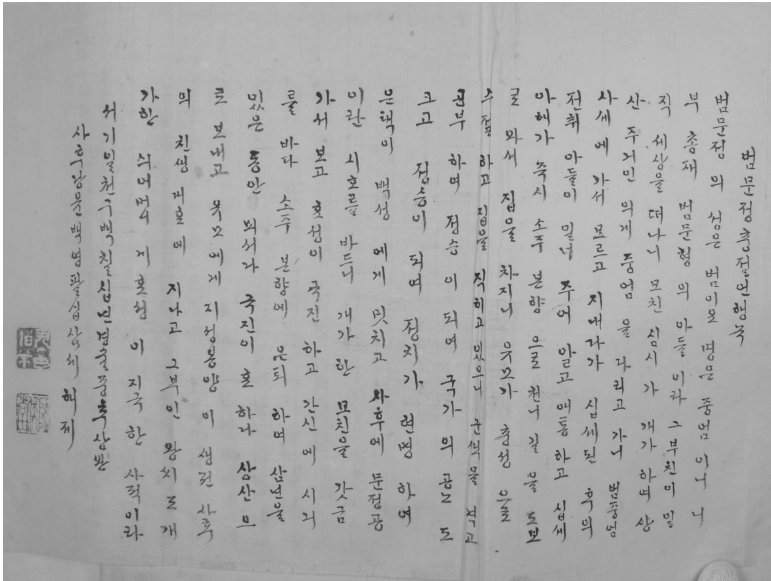 범문정충절언행녹
범문정 의 성은 범이요 명은 중엄 이니 니
부 총재 범문형 의 아들 이라 그부친이 일
직 세상을 떠나니 모친 심시 가 개가 하며 상
산 주거인 의게 중엄 을 다리고 가니 범중엄
사세 에 가서 모르고 지내다가 십세된 후의
전취 아들이 일너 주어 알고 애통 하고 십세
아해가 즉시 소주 분향 으로 천니 길 을 도보
로 와서 집을 차지니 유모가 충성 으로
수절 하고 집을 직히고 있으니 눈색을 보고
공부 하여 정승 이 되여 국가 의 공노 도
크고 정승이 되여 정치가 현명 하여
은택이 백성 에게 밋치고 사후에 문정공
이란 시호를 바드니 개가 한 모친을 갓금
가서 보고 효성이 극진 하고 간신 에 시긔
를 바다 소주 분향에 은퇴 하며 삼년을
있은 동안 뫼서다 극진이 효 하다 상산 으
로 보내고 유모 에게 지성봉양 이 생전 사후
의 친생 지효에 지나고 그부인 왕씨 도 개
가한 싀어머니 게 효행 이 지극 한 사적이라
서기일천구백칠십년경술중추상완
사후왕문백영필십삼세 해제